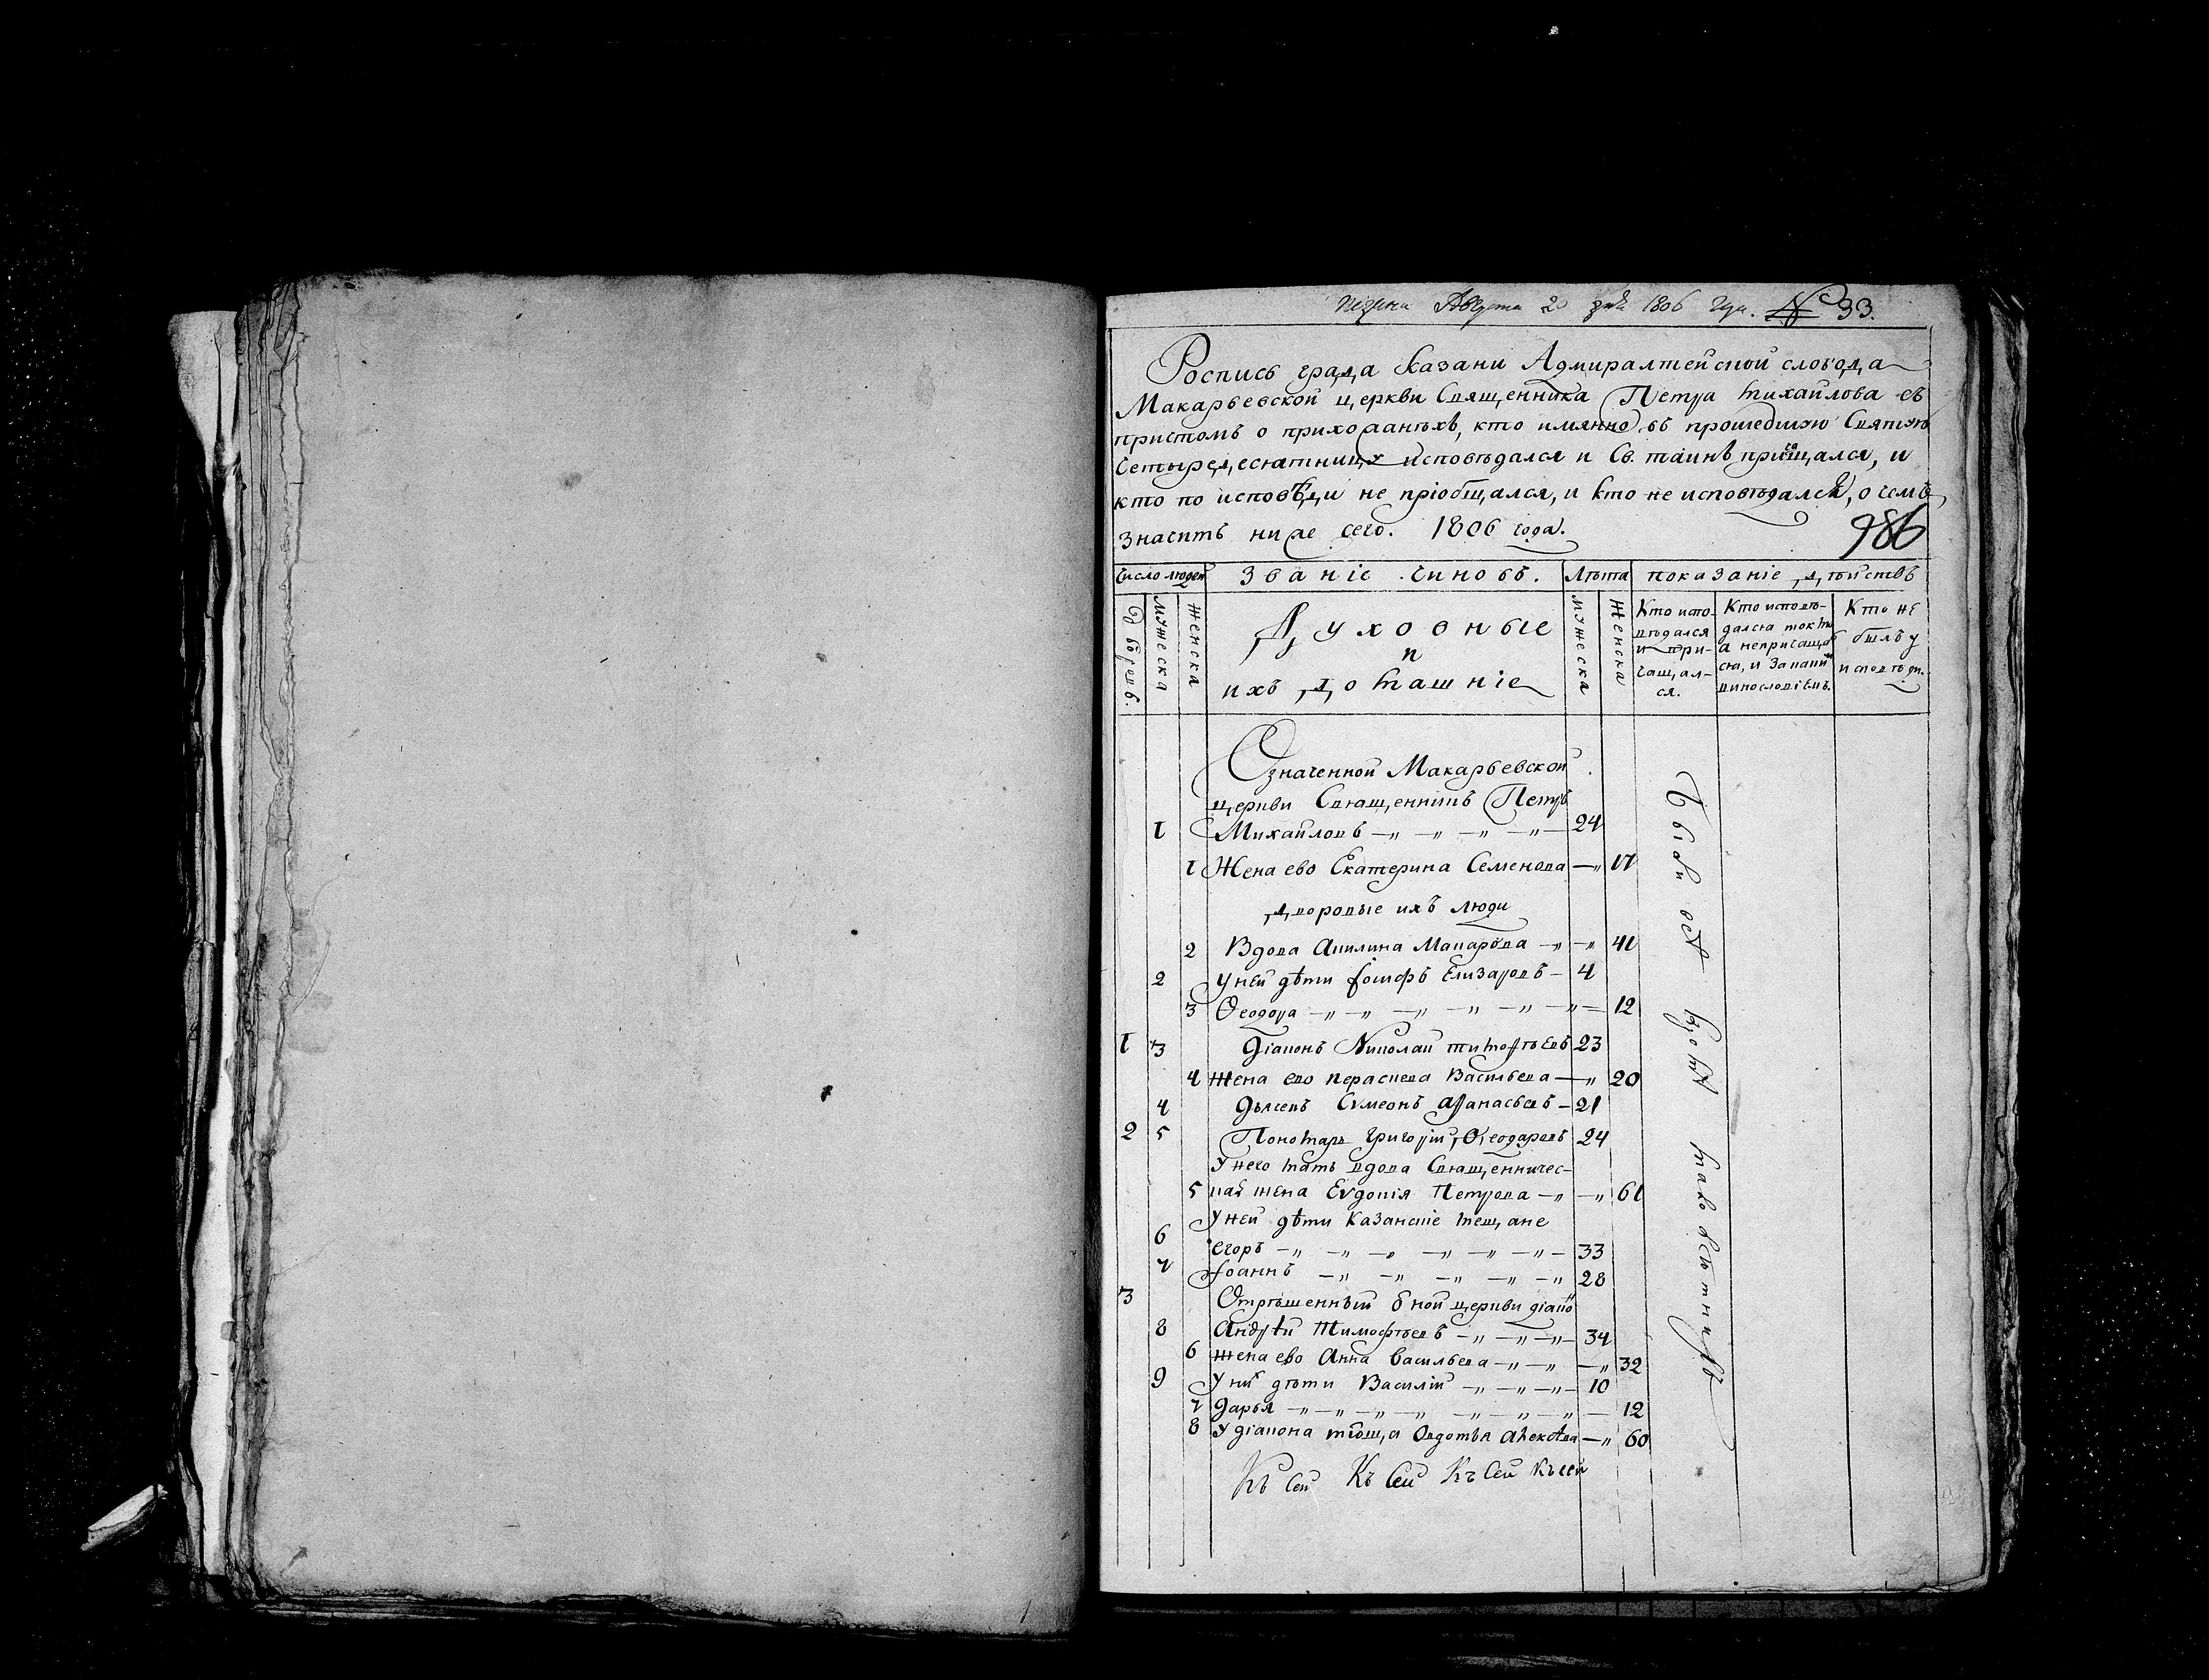 Августа 20 дня 1806 года. № 33.
Роспись града Казани Адмиралтейской слободы
Макарьевской церкви Священника Петра Михайлова съ
притчомъ о прихожанѣхъ, кто имянно въ прошедшую Святую
четыредесятницу исповѣдался и Св. таинъ причащался, и
кто по исповѣди не пріобщался, и кто не исповѣдался, о чемъ
значитъ ниже сего. 1806 года.
986
Число людей
Званіе чиновъ.
Лѣта
показаніе дѣйствъ
Дворовъ.
Мужеска
Женска
Духовные
и
ихъ домашніе
Мужеска
Женска
Кто испо-
вѣдался
и при-
чащал-
ся.
Кто исповѣ-
дался токмо
а непричащал
ся, и Закаким
винословіемъ.
Кто не
былъ у
исповѣди.
Означенной Макарьевской
церкви Священникъ Петръ
1 Михайловъ 24
1 Жена ево Екатерина Семенова 17
дворовые ихъ люди
2 Вдова Акилина Макарова 41
2 У ней дѣти Іосифъ Елизаровъ 4
3 Ѳеодора 12
1 3 Діаконъ Николай Тимофѣевъ 23
4 Жена ево Пераскева Васильева 20
4 Дьячекъ Сѵмеонъ Афанасьевъ 21
2 5 Пономарь Григорій Ѳеодоровъ 24
У него мать вдова Священничес-
5 кая жена Еѵдокія Петрова 61
У ней дѣти Казанскіе мещане
6 Егоръ 33
7 Іоаннъ 28
3 Отрѣшенный оной церкви діако
8 Андрѣй Тимофѣевъ 34
6 Жена ево Анна Васильева 32
9 У них дѣти Василій 10
7 Дарья 12
8 У діакона тіоща Овдотья Алексѣва 60
Къ сей Къ сей Къ сей Къ сей